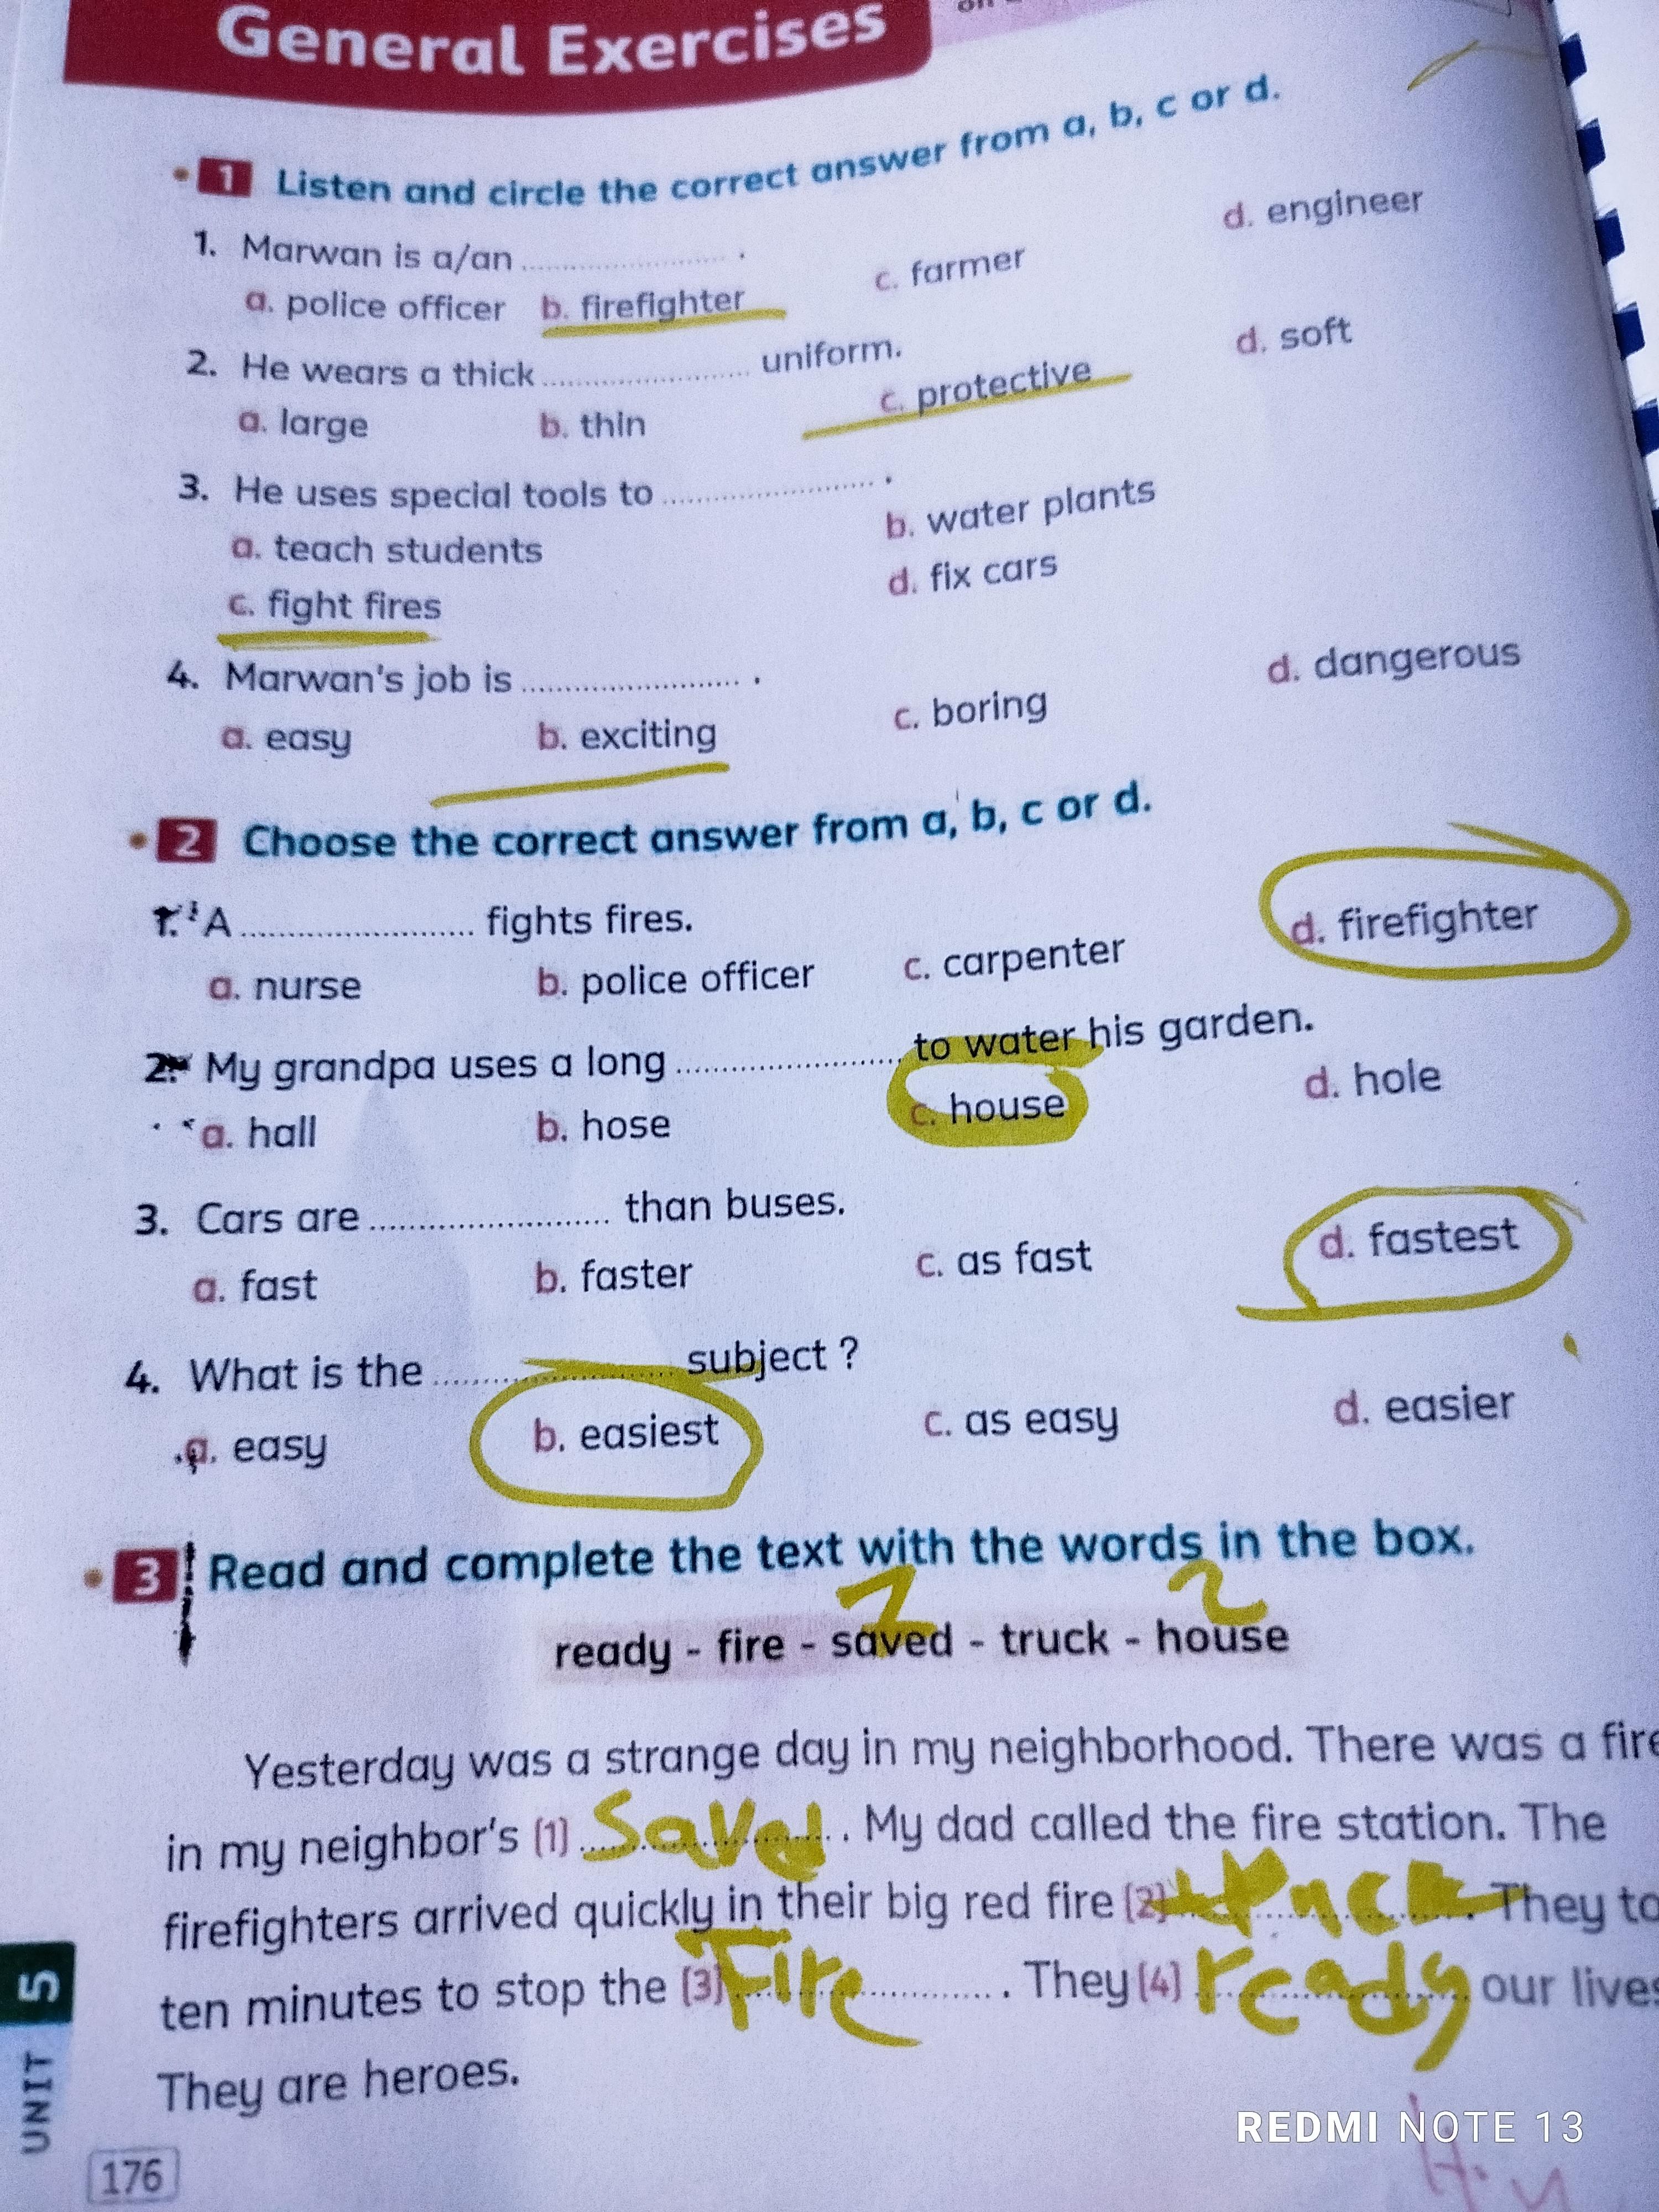 General Exercises
1 Listen and circle the correct answer from a, b, c or d.
1. Marwan is a/an ........................ .
a. police officer b. firefighter c. farmer d. engineer
2. He wears a thick ........................ uniform.
a. large b. thin c. protective d. soft
3. He uses special tools to ........................ .
a. teach students b. water plants
c. fight fires d. fix cars
4. Marwan's job is ........................ .
a. easy b. exciting c. boring d. dangerous
2 Choose the correct answer from a, b, c or d.
1. A ........................ fights fires.
a. nurse b. police officer c. carpenter d. firefighter
2. My grandpa uses a long ........................ to water his garden.
a. hall b. hose c. house d. hole
3. Cars are ........................ than buses.
a. fast b. faster c. as fast d. fastest
4. What is the ........................ subject ?
a. easy b. easiest c. as easy d. easier
3 Read and complete the text with the words in the box.
ready - fire - saved - truck - house
Yesterday was a strange day in my neighborhood. There was a fire
in my neighbor's (1) Saved . My dad called the fire station. The
firefighters arrived quickly in their big red fire (2) truck . They
ten minutes to stop the (3) Fire . They (4) ready our lives
They are heroes.
UNIT 5
176
REDMI NOTE 13